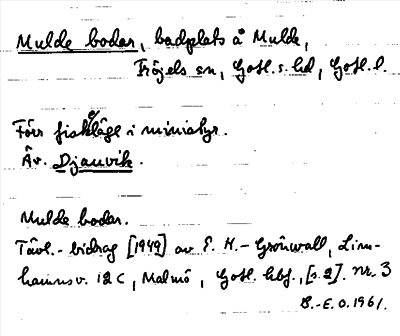 Mulde bodar, badplats å Mulde,
Fröjels sn, Gotl. s. hd, Gotl. l.
Förr fiskläge i miniatyr.
Äv. Djauvik.
Mulde bodar.
Tävl.-bidrag [1949] av E. H.-Grönwall, Lim-
hamnsv. 12 C, Malmö, Gotl. hbf., [s. 2]. nr. 3
B.-E. O. 1961.